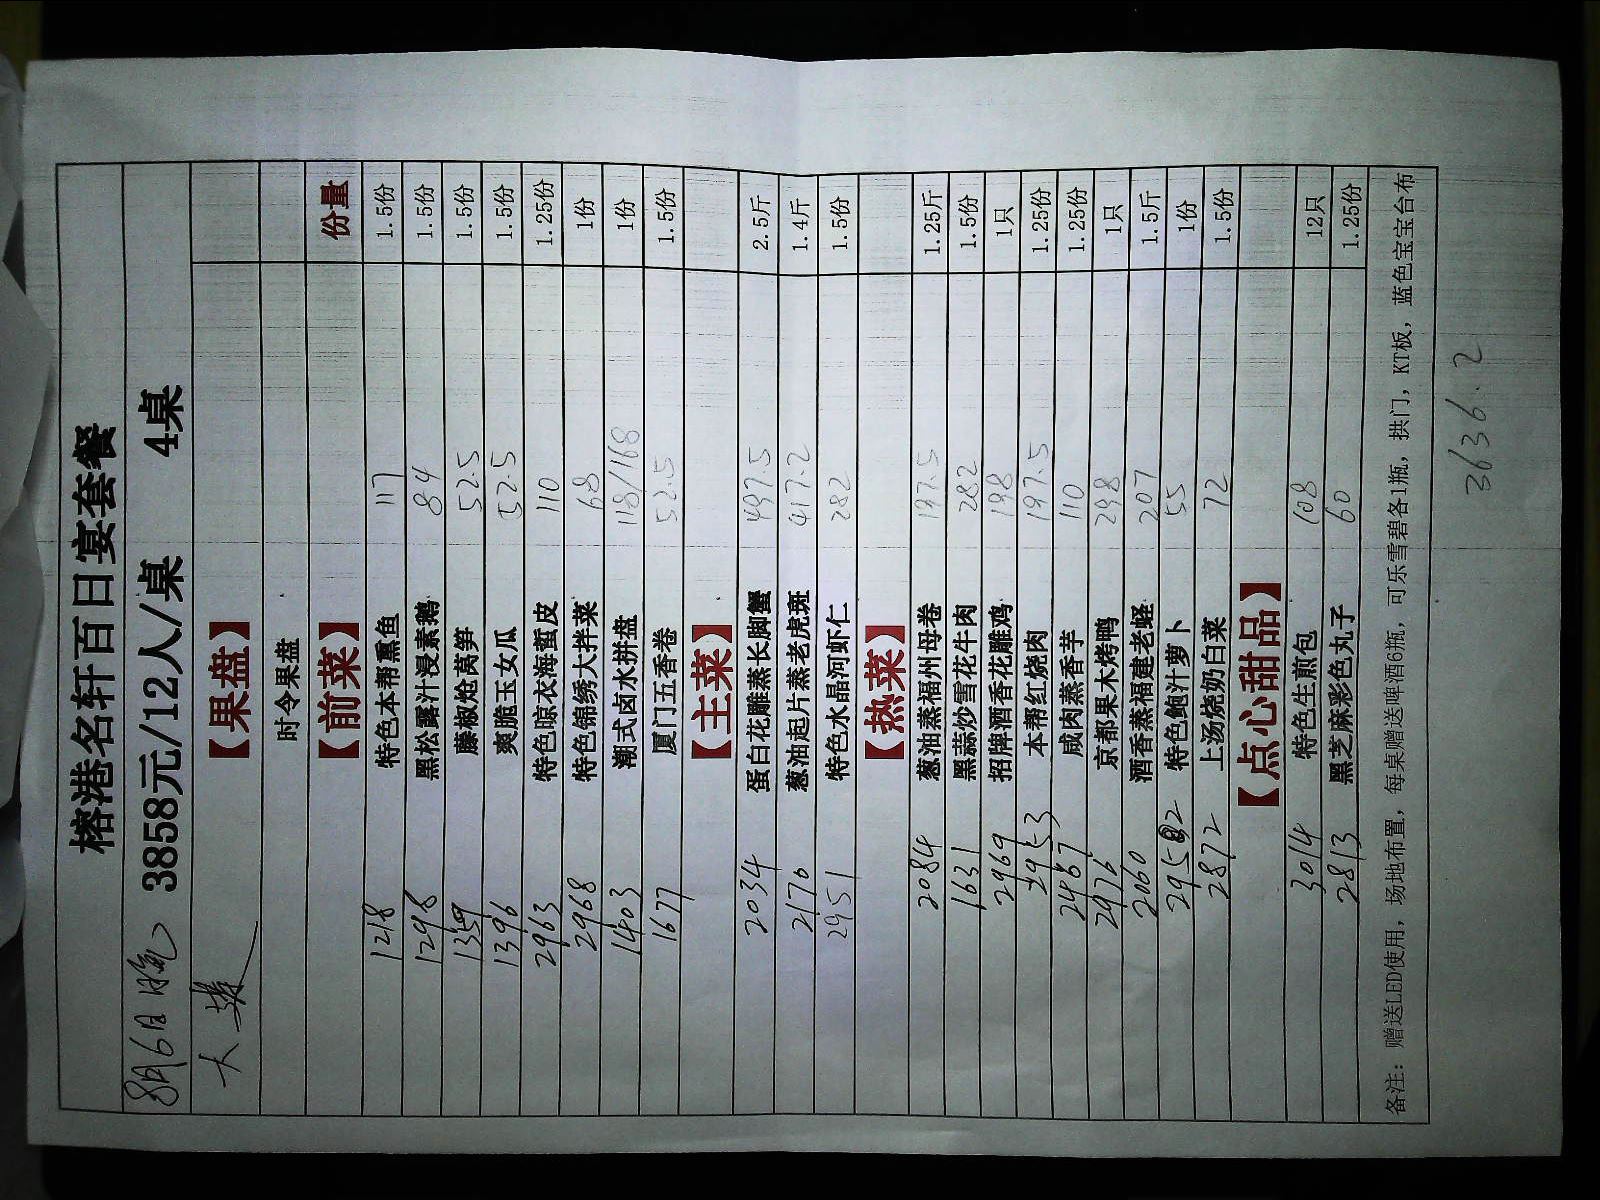 榕港名轩百日宴套餐
8月6日晚 3858元/12人/桌 4桌
【果盘】
时令果盘
【前菜】 份量
1218 特色本帮熏鱼 117 1.5份
1298 黑松露汁浸素鹅 84 1.5份
1359 藤椒炝莴笋 52.5 1.5份
1396 爽脆玉女瓜 52.5 1.5份
2963 特色晾衣海蜇皮 110 1.25份
2968 特色锦绣大拌菜 68 1份
1403 潮式卤水拼盘 118/168 1份
1677 厦门五香卷 52.5 1.5份
【主菜】
2034 蛋白花雕蒸长脚蟹 497.5 2.5斤
2176 葱油起片蒸老虎斑 417.2 1.4斤
2951 特色水晶河虾仁 282 1.5份
【热菜】
2084 葱油蒸福州母卷 197.5 1.25斤
1631 黑蒜炒雪花牛肉 282 1.5份
2969 招牌酒香花雕鸡 198 1只
2953 本帮红烧肉 197.5 1.25份
2487 咸肉蒸香芋 110 1.25份
2976 京都果木烤鸭 298 1只
2060 酒香蒸福建老蛏 207 1.5斤
2952 特色鲍汁萝卜 55 1份
2872 上汤烧奶白菜 72 1.5份
【点心甜品】
3014 特色生煎包 108 12只
2813 黑芝麻彩色丸子 60 1.25份
备注：赠送LED使用，场地布置，每桌赠送啤酒6瓶，可乐雪碧各1瓶，拱门，KT板，蓝色宝宝台布
3636.2